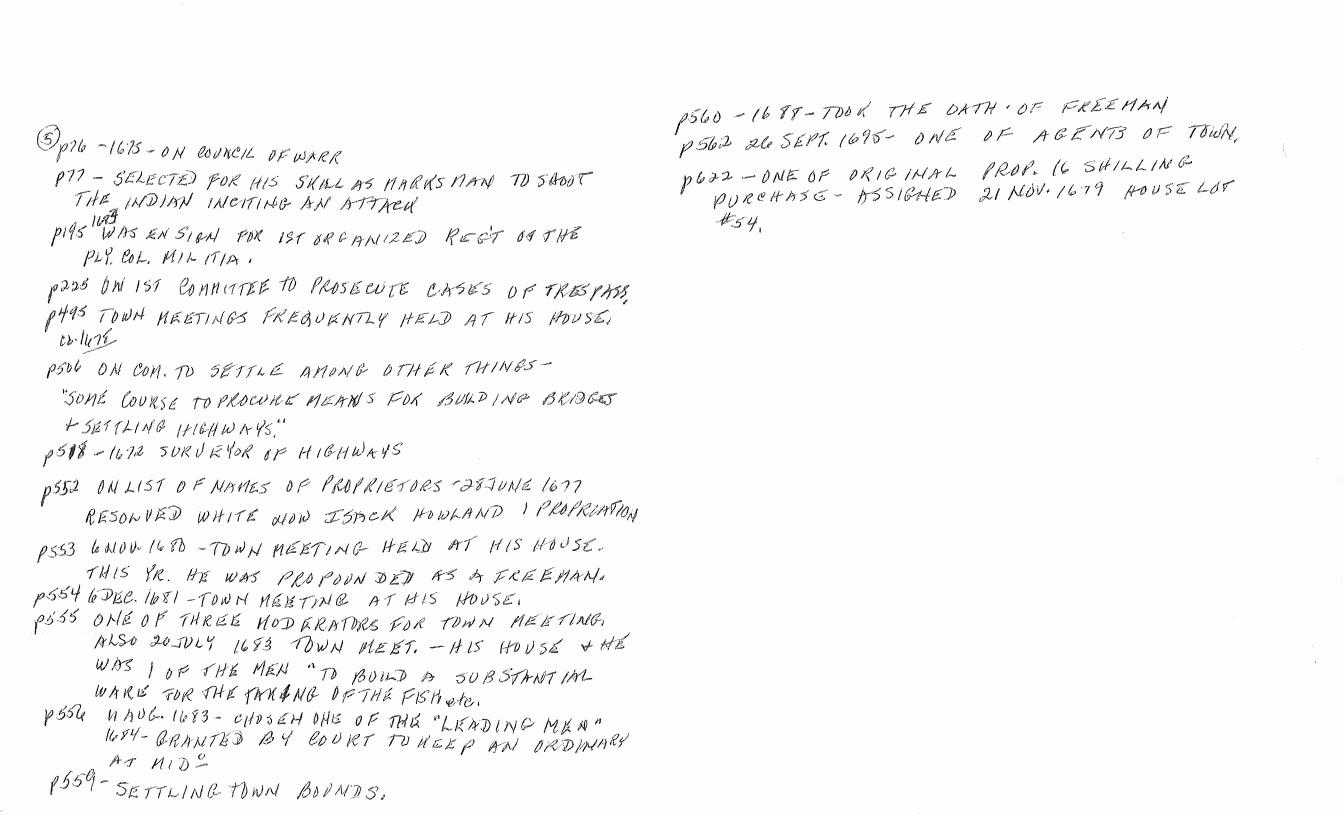 ⑤ p76 - 1675 - ON COUNCIL OF WARR
p77 - SELECTED FOR HIS SKILL AS MARKSMAN TO SHOOT
THE INDIAN INCITING AN ATTACK
1683
p195 WAS ENSIGN FOR 1ST ORGANIZED REG'T OF THE
PLY. COL. MILITIA.
p225 ON 1ST COMMITTEE TO PROSECUTE CASES OF TRESPASS,
p495 TOWN MEETINGS FREQUENTLY HELD AT HIS HOUSE.
ca. 1678
p506 ON COM. TO SETTLE AMONG OTHER THINGS -
"SOME COURSE TO PROCURE MEANS FOR BUILDING BRIDGES
+ SETTLING HIGHWAYS."
p518 - 1672 SURVEYOR OF HIGHWAYS
p552 ON LIST OF NAMES OF PROPRIETORS - 28 JUNE 1677
RESOLVED WHITE NOW ISACK HOWLAND 1 PROPRIATION
p553 6 NOV. 1680 - TOWN MEETING HELD AT HIS HOUSE.
THIS YR. HE WAS PROPOUNDED AS A FREEMAN.
p554 6 DEC. 1681 - TOWN MEETING AT HIS HOUSE.
p555 ONE OF THREE MODERATORS FOR TOWN MEETING.
ALSO 20 JULY 1683 TOWN MEET. - HIS HOUSE + HE
WAS 1 OF THE MEN "TO BUILD A SUBSTANTIAL
WARE FOR THE TAKING OF THE FISH etc.
p556 11 AUG. 1683 - CHOSEN ONE OF THE "LEADING MEN"
1684 - GRANTED BY COURT TO KEEP AN ORDINARY
AT MIDº
p559 - SETTLING TOWN BOUNDS.
p560 - 1688 - TOOK THE OATH OF FREEMAN
p562 26 SEPT. 1695 - ONE OF AGENTS OF TOWN.
p622 - ONE OF ORIGINAL PROP. 16 SHILLING
PURCHASE - ASSIGNED 21 NOV. 1679 HOUSE LOT
#54.